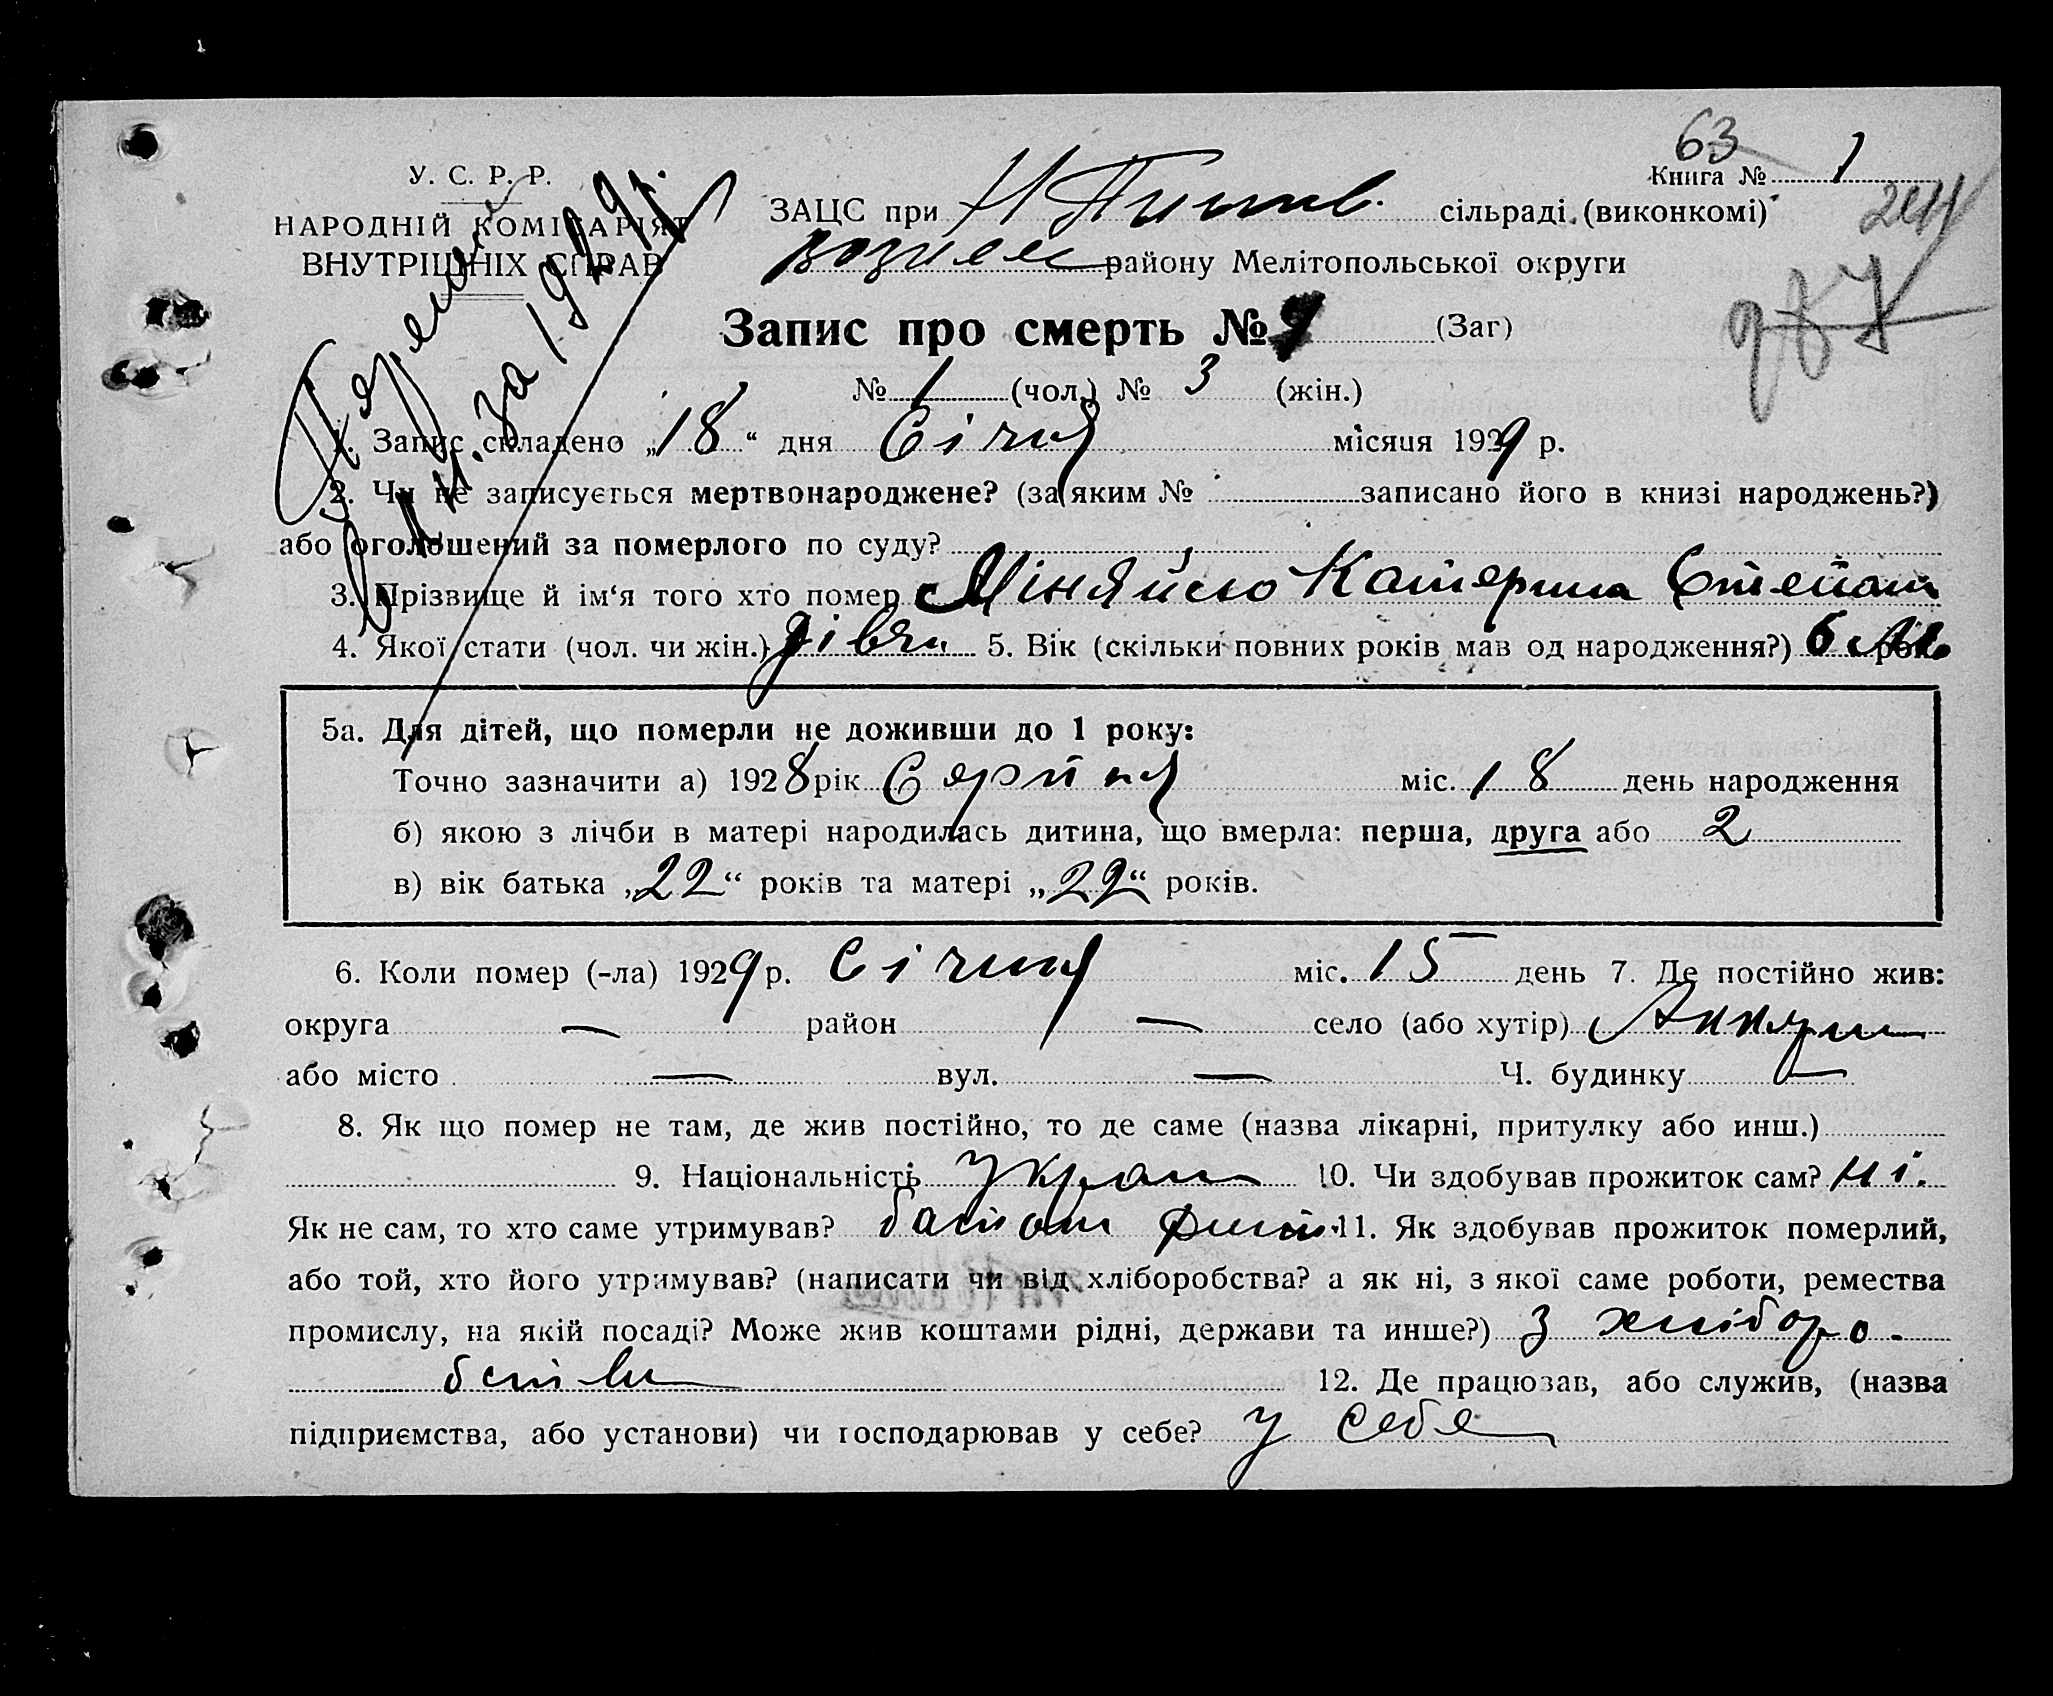 63
Книга № 1
У. С. Р. Р.
НАРОДНІЙ КОМІСАРІЯТ
ВНУТРІШНІХ СПРАВ
ЗАЦС при сільраді (виконкомі)
244
району Мелітопольської округи
Запис про смерть № (Заг)
№ 1 (чол.) № 3 (жін.)
1. Запис складено „18“ дня Січня місяця 1929 р.
2. Чи не записується мертвонароджене? (за яким № записано його в книзі народжень?)
або оголошений за померлого по суду?
3. Прізвище й ім‘я того хто помер Міняйло Катерина Степан
4. Якої стати (чол. чи жін.) дівч. 5. Вік (скільки повних років мав од народження?) 5 рок.
5а. Для дітей, що померли не доживши до 1 року:
Точно зазначити а) 1928 рік Серпня міс. 18 день народження
б) якою з лічби в матері народилась дитина, що вмерла: перша, друга або 2
в) вік батька „22“ років та матері „22“ років.
6. Коли помер (-ла) 1929 р. Січня міс. 15 день 7. Де постійно жив:
округа — район — село (або хутір)
або місто — вул. — Ч. будинку —
8. Як що помер не там, де жив постійно, то де саме (назва лікарні, притулку або инш.)
9. Національність Україн 10. Чи здобував прожиток сам? ні.
Як не сам, то хто саме утримував? батько 11. Як здобував прожиток померлий,
або той, хто його утримував? (написати чи від хліборобства? а як ні, з якої саме роботи, ремества
промислу, на якій посаді? Може жив коштами рідні, держави та инше?) З хліборо-
бства 12. Де працював, або служив, (назва
підприємства, або установи) чи господарював у себе? у себе